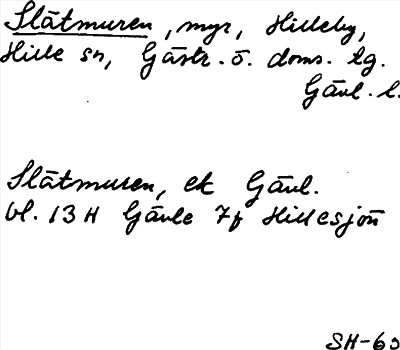 Slätmuren, myr, Hilleby,
Hille sn, Gästr. ö. doms. tg.
Gävl. l.
Slätmuren, ek Gävl.
bl. 13 H Gävle 7f Hillesjön
SH-63